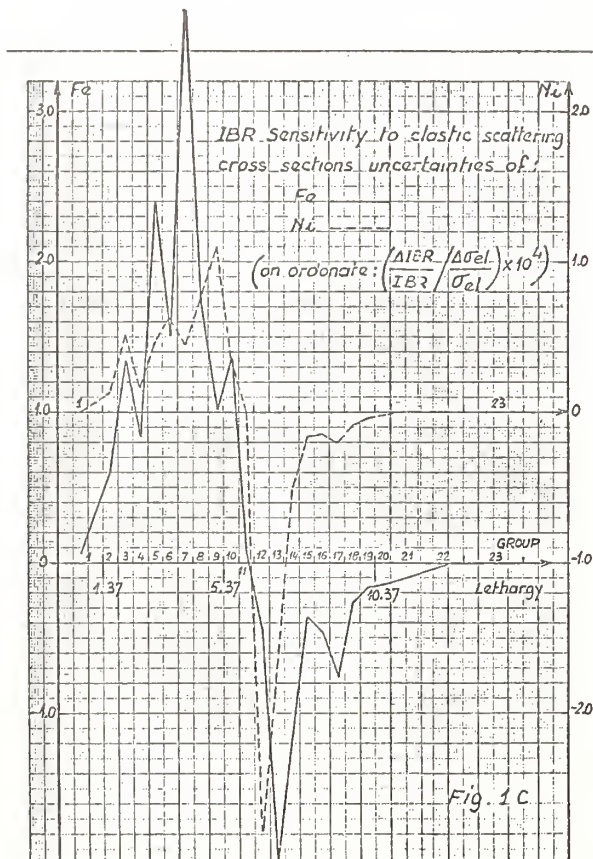 Fe
Ni
3,0
2.0
IBR Sensitivity to elastic scattering
cross sections uncertainties of:
Fe
Ni
2.0
1.0
(on ordonate: (ΔIBR/IBR / Δσel/σel) x10⁴)
1.0
1
23
0
0
1 2 3 4 5 6 7 8 9 10 11 12 13 14 15 16 17 18 19 20 21 22 23
GROUP
-1.0
1.37
5.37
10.37
Lethargy
1.0
-2.0
Fig. 1C